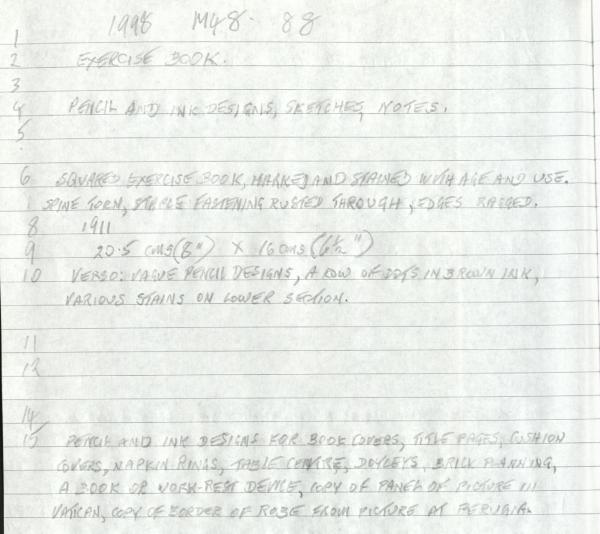 1998 M48. 88
1
2 EXERCISE BOOK.
3
4 PENCIL AND INK DESIGNS, SKETCHES, NOTES.
5
6 SQUARED EXERCISE BOOK, MARKED AND STAINED WITH AGE AND USE.
SPINE TORN, STAPLE FASTENING RUSTED THROUGH, EDGES RAGGED.
8 1911
9 20.5 cms (8") X 16 cms (6½")
10 VERSO: VAGUE PENCIL DESIGNS, A ROW OF DOTS IN BROWN INK,
VARIOUS STAINS ON LOWER SECTION.
11
12
14
15 PENCIL AND INK DESIGNS FOR BOOK COVERS, TITLE PAGES, CUSHION
COVERS, NAPKIN RINGS, TABLE CENTRE, DOYLEYS, BRICK PLANNING,
A BOOK OR WORK-REST DEVICE, COPY OF PANEL OF PICTURE IN
VATICAN, COPY OF BORDER OF ROBE FROM PICTURE AT PERUGIA.